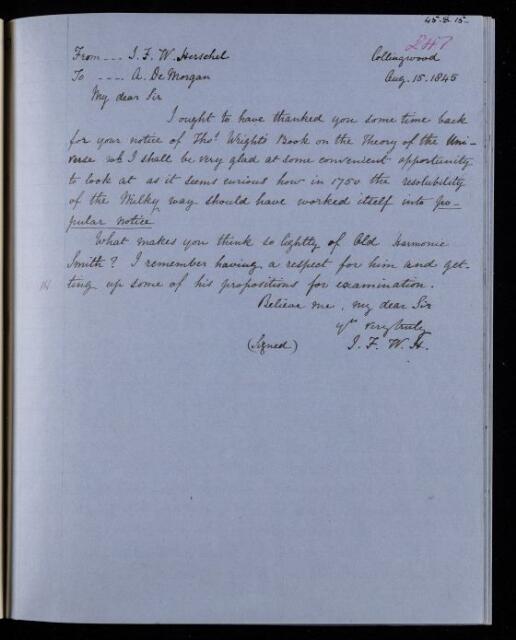 45.8.15
247
From --- J. F. W. Herschel Collingwood
To ---- A. De Morgan Aug. 15. 1845
My dear Sir
I ought to have thanked you some time back
for your notice of Thos. Wright's Book on the Theory of the Uni-
verse wh I shall be very glad at some convenient opportunity
to look at as it seems curious how in 1750 the resolubility
of the Milky way should have worked itself into po-
pular notice
What makes you think so lightly of Old Harmonic
Smith? I remember having a respect for him and get-
ting up some of his propositions for examination.
Believe me, my dear Sir
yrs very truly
(Signed) J. F. W. H.